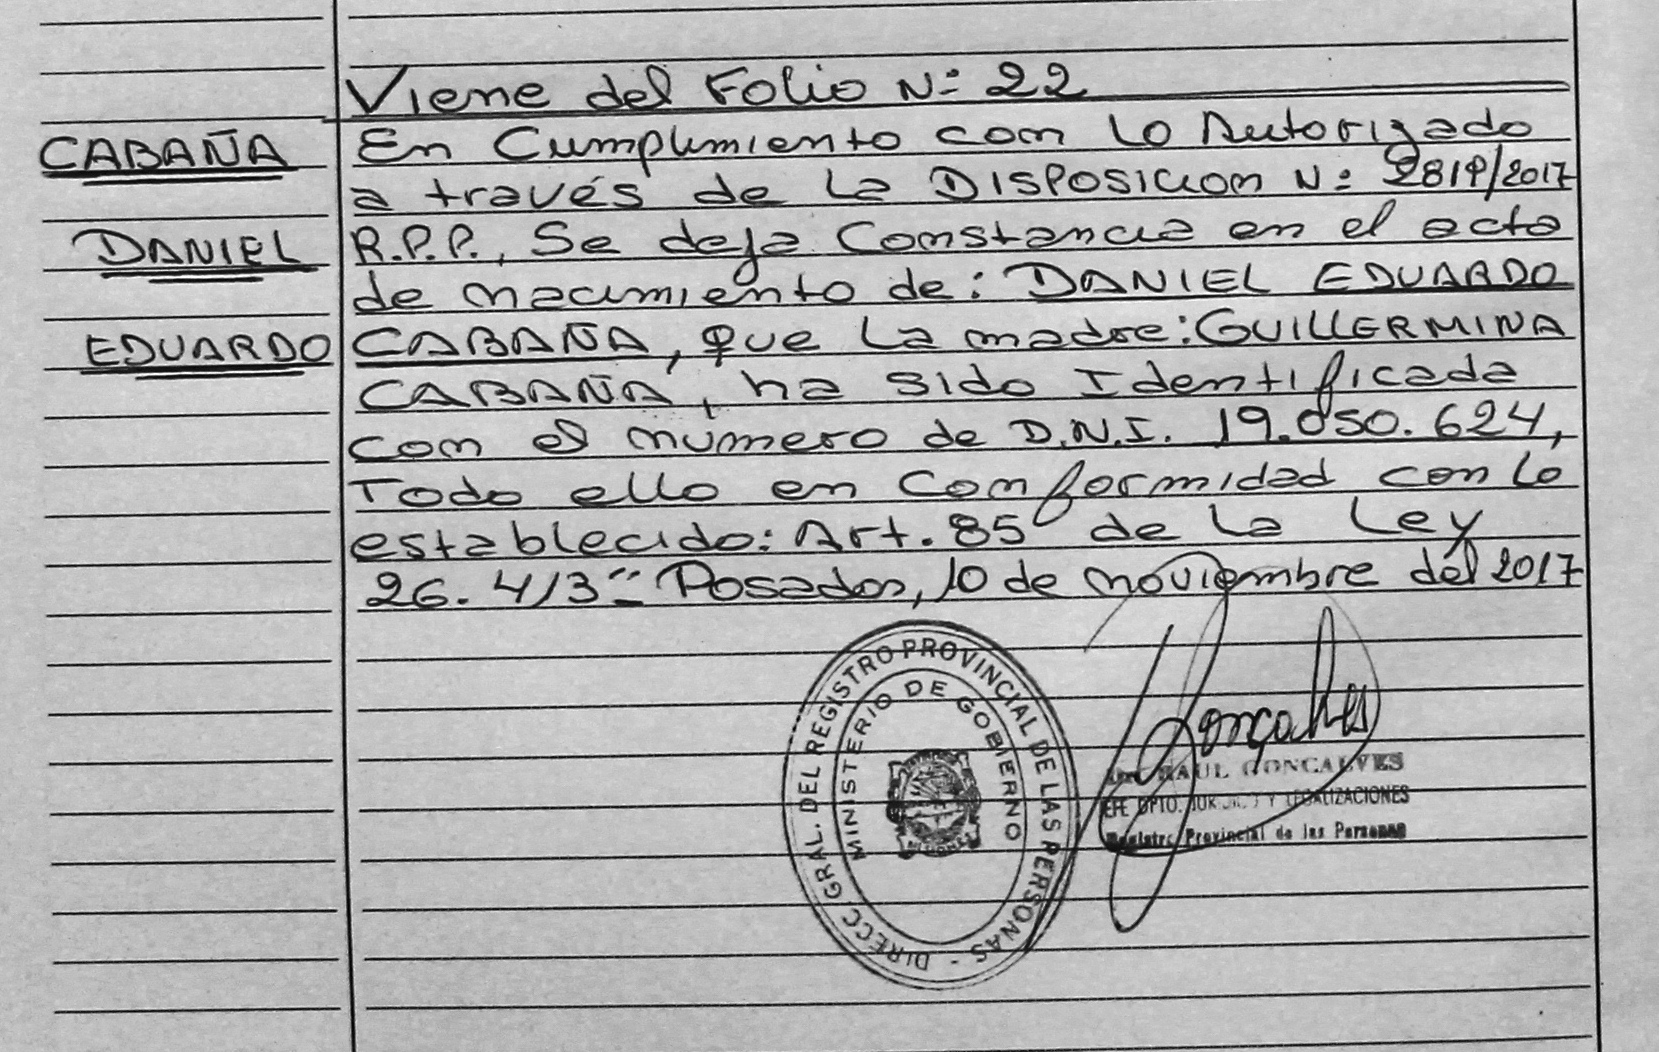 Viene del Folio N: 22
CABAÑA
En Cumplimiento con lo Autorizado
a través de la DISPOSICION N: 2819/2017
DANIEL
R.P.P., Se deja Constancia en el acta
de nacimiento de: DANIEL EDUARDO
EDUARDO
CABAÑA, que la madre: GUILLERMINA
CABAÑA, ha sido Identificada
con el número de D.N.I. 19.050.624,
Todo ello en Conformidad con lo
establecido: Art. 85 de la Ley
26.413 Posadas, 10 de noviembre del 2017
DIRECC. GRAL. DEL REGISTRO PROVINCIAL DE LAS PERSONAS -
MINISTERIO DE GOBIERNO
Gonçalves
RAUL GONCALVES
DPTO. Y LEGALIZACIONES
Registro Provincial de las Personas